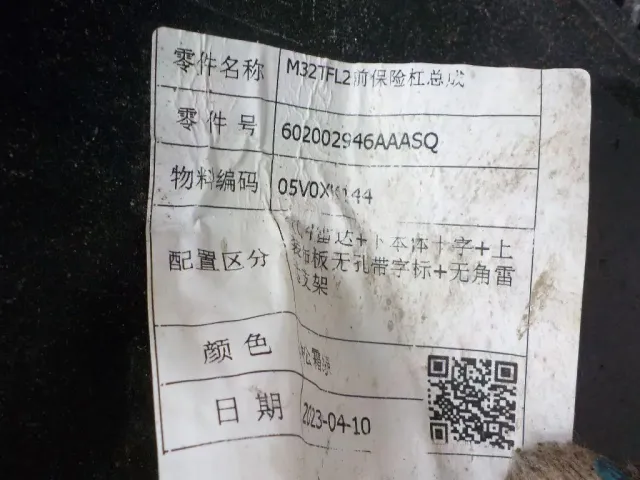 零件名称 M32TFL2前保险杠总成
零件号 602002946AAASQ
物料编码 05V0X 144
配置区分 雷达+下本体十字+上
板无孔带字标+无角雷
支架
颜色 松霜绿
日期 2023-04-10